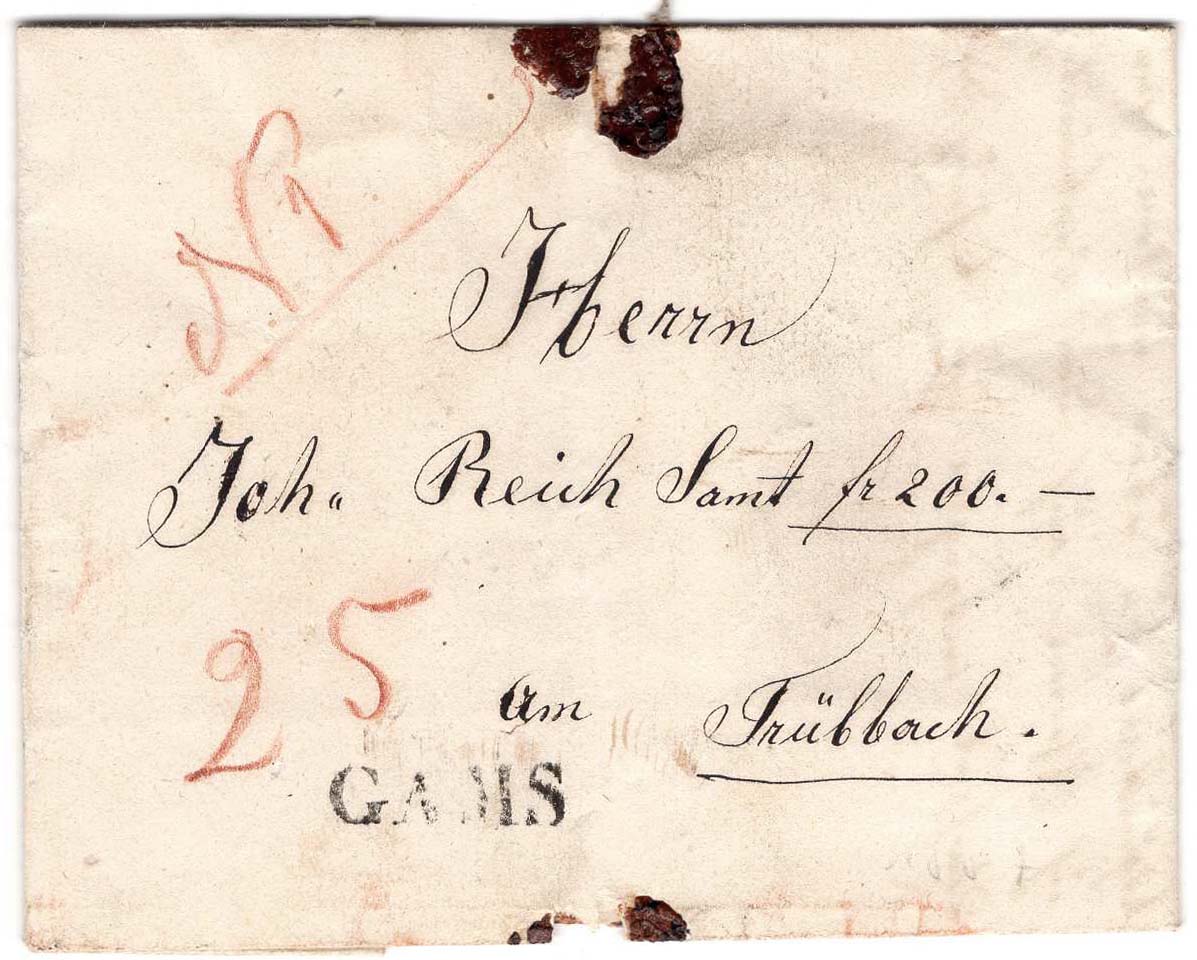 Herrn
Joh„ Reich Samt fr 200. —
25
am Trübbach.
GAMS